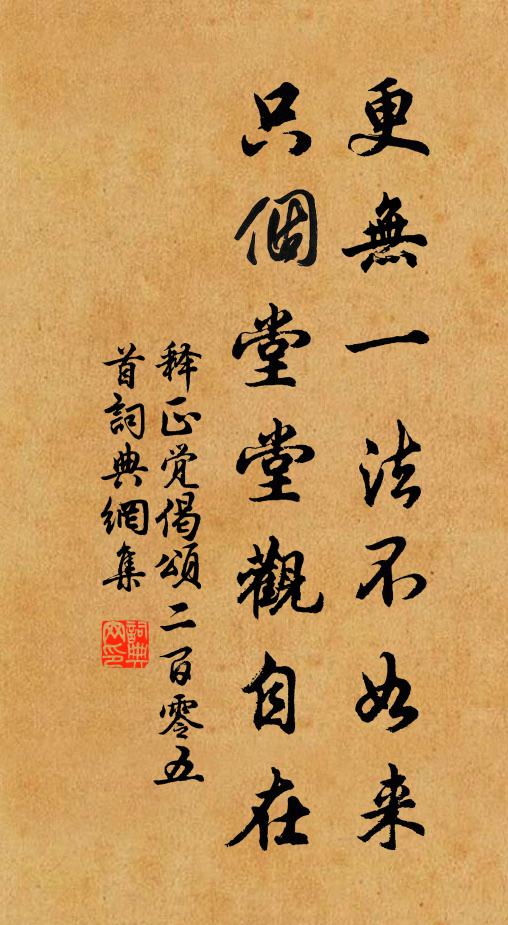 更無一法不如来
只個堂堂觀自在
释正觉偈頌二百零五
首詞典網集
詞典網印